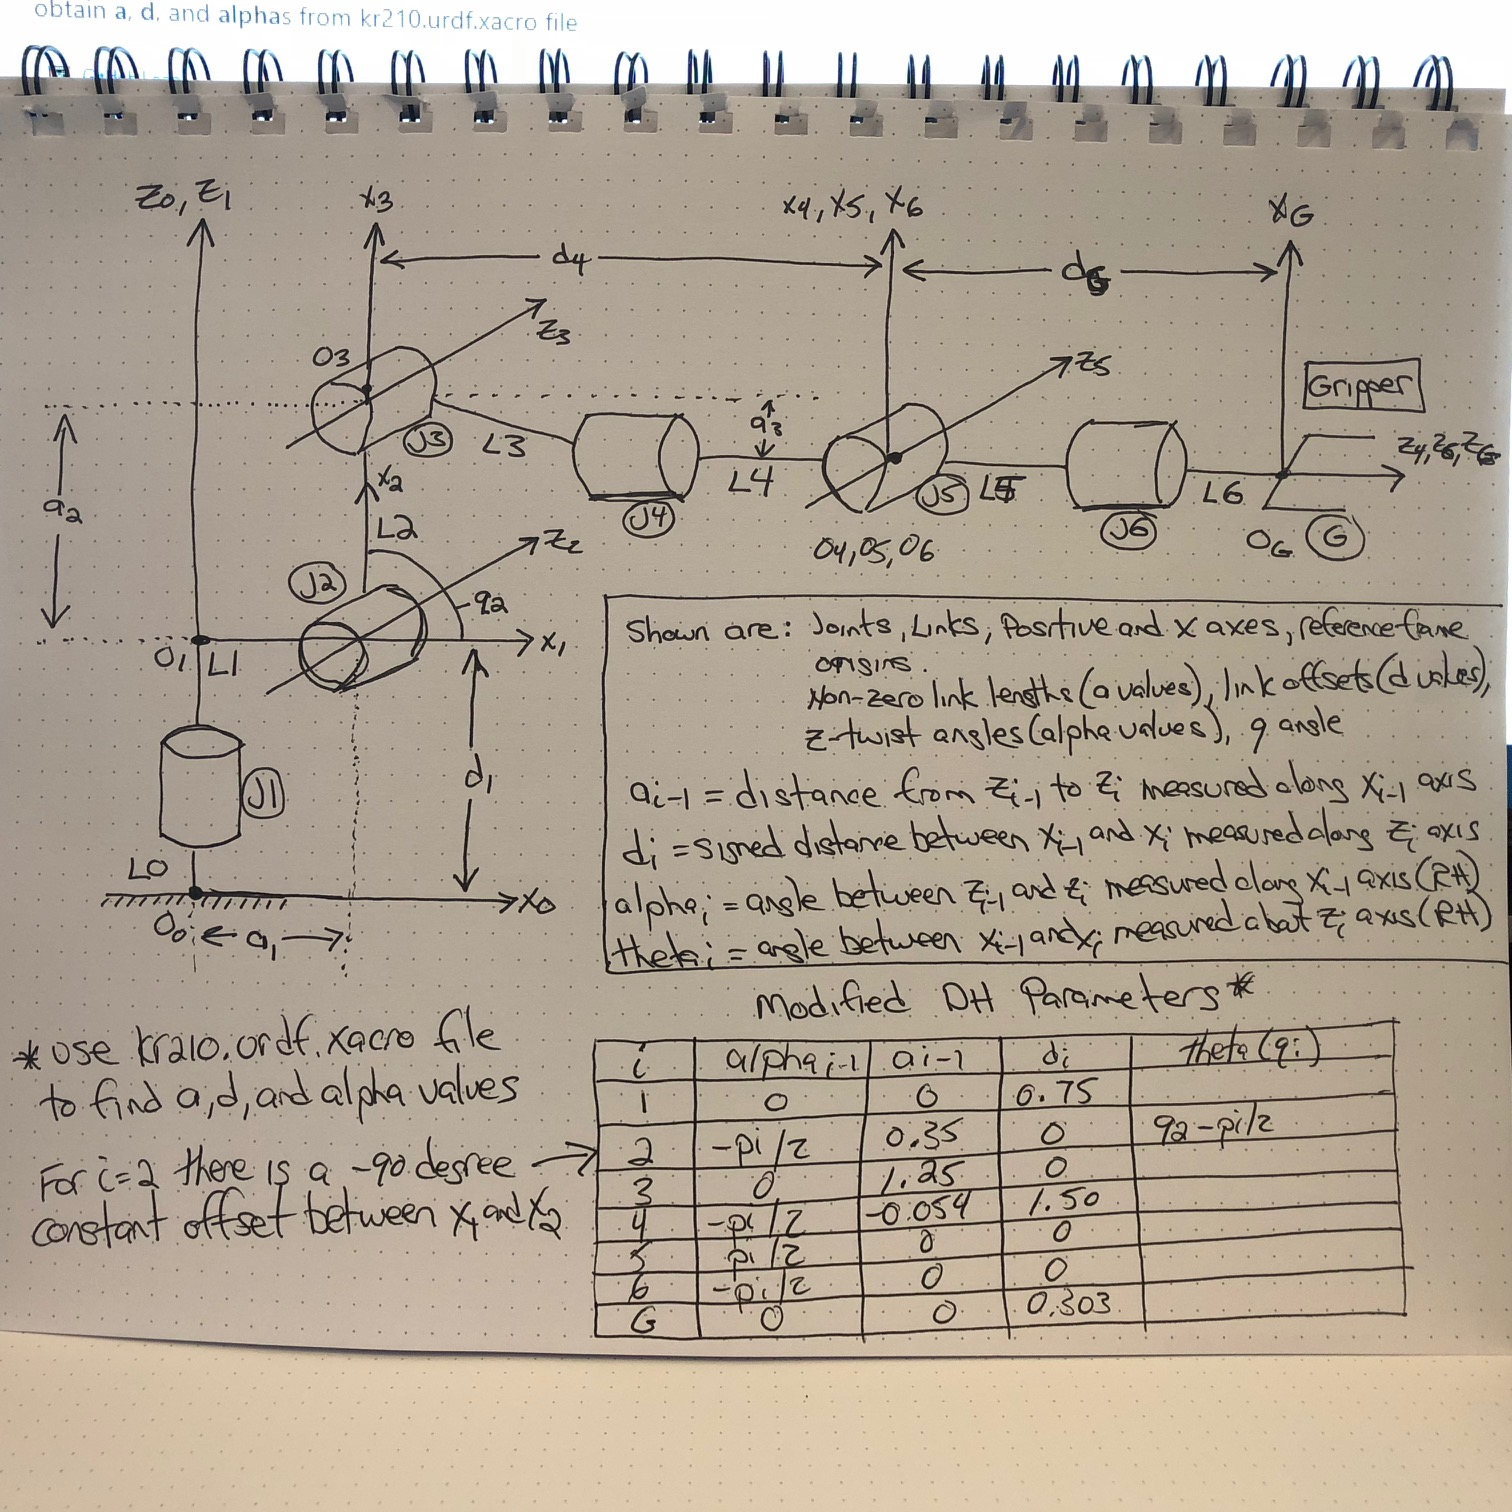 obtain a, d, and alphas from kr210.urdf.xacro file
Z0, Z1
X3
X4, X5, X6
XG
d4
dG
Z3
O3
Z5
Gripper
J3
L3
a3
Z4, Z6, ZG
L4
X2
a2
L2
J4
J5
L5
J6
L6
OG
G
O4, O5, O6
Z2
J2
q2
X1
O1
L1
d1
J1
L0
X0
O0
a1
Shown are: Joints, Links, Positive and X axes, reference frame
origins.
Non-zero link lengths (a values), link offsets (d values),
z-twist angles (alpha values), q angle
ai-1 = distance from Zi-1 to Zi measured along Xi-1 axis
di = signed distance between Xi-1 and Xi measured along Zi axis
alphai = angle between Zi-1 and Zi measured along Xi-1 axis (RH)
thetai = angle between Xi-1 and Xi measured about Zi axis (RH)
Modified DH Parameters*
* Use kr210.urdf.xacro file
to find a, d, and alpha values
For i=2 there is a -90 degree
constant offset between X1 and X2
i alphai-1 ai-1 di theta (qi)
1 0 0 0.75
2 -pi/2 0.35 0 q2-pi/2
3 0 1.25 0
4 -pi/2 -0.054 1.50
5 pi/2 0 0
6 -pi/2 0 0
G 0 0 0.303